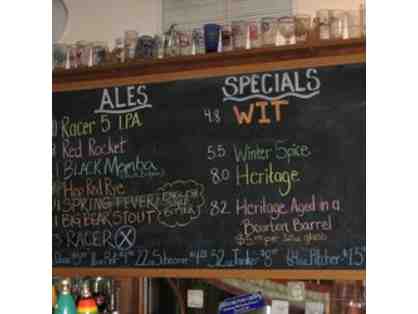 ALES
Racer 5 IPA
Red Rocket
BLACK Mamba
Hop Rod Rye
SPRING FEVER
BIG BEAR STOUT
RACER X
SPECIALS
4.8 WIT
5.5 Winter Spice
8.0 Heritage
8.2 Heritage Aged in a
Bourbon Barrel
22oz Schooner 32oz Tanko 64oz Pitcher $15